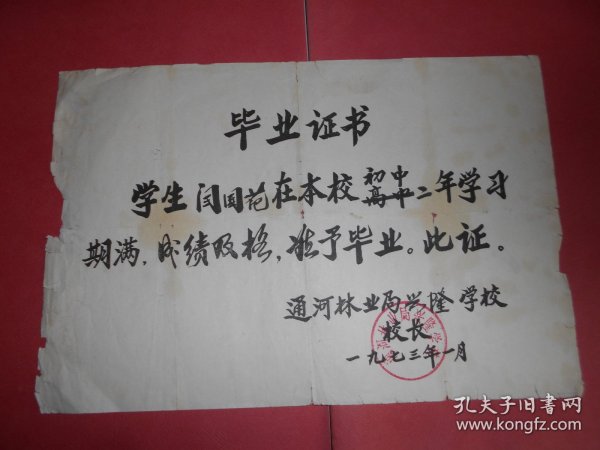 毕业证书
学生闫国范在本校初中
高中二年学习
期满，成绩及格，准予毕业。此证。
通河林业局兴隆学校
校长
一九七三年一月
孔夫子旧书网
www.kongfz.com